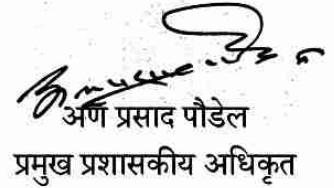 अण प्रसाद पौडेल
प्रमुख प्रशासकीय अधिकृत